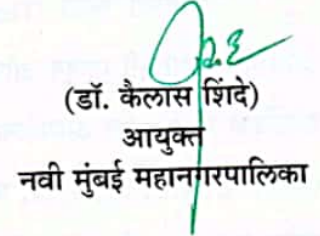 (डॉ. कैलास शिंदे)
आयुक्त
नवी मुंबई महानगरपालिका